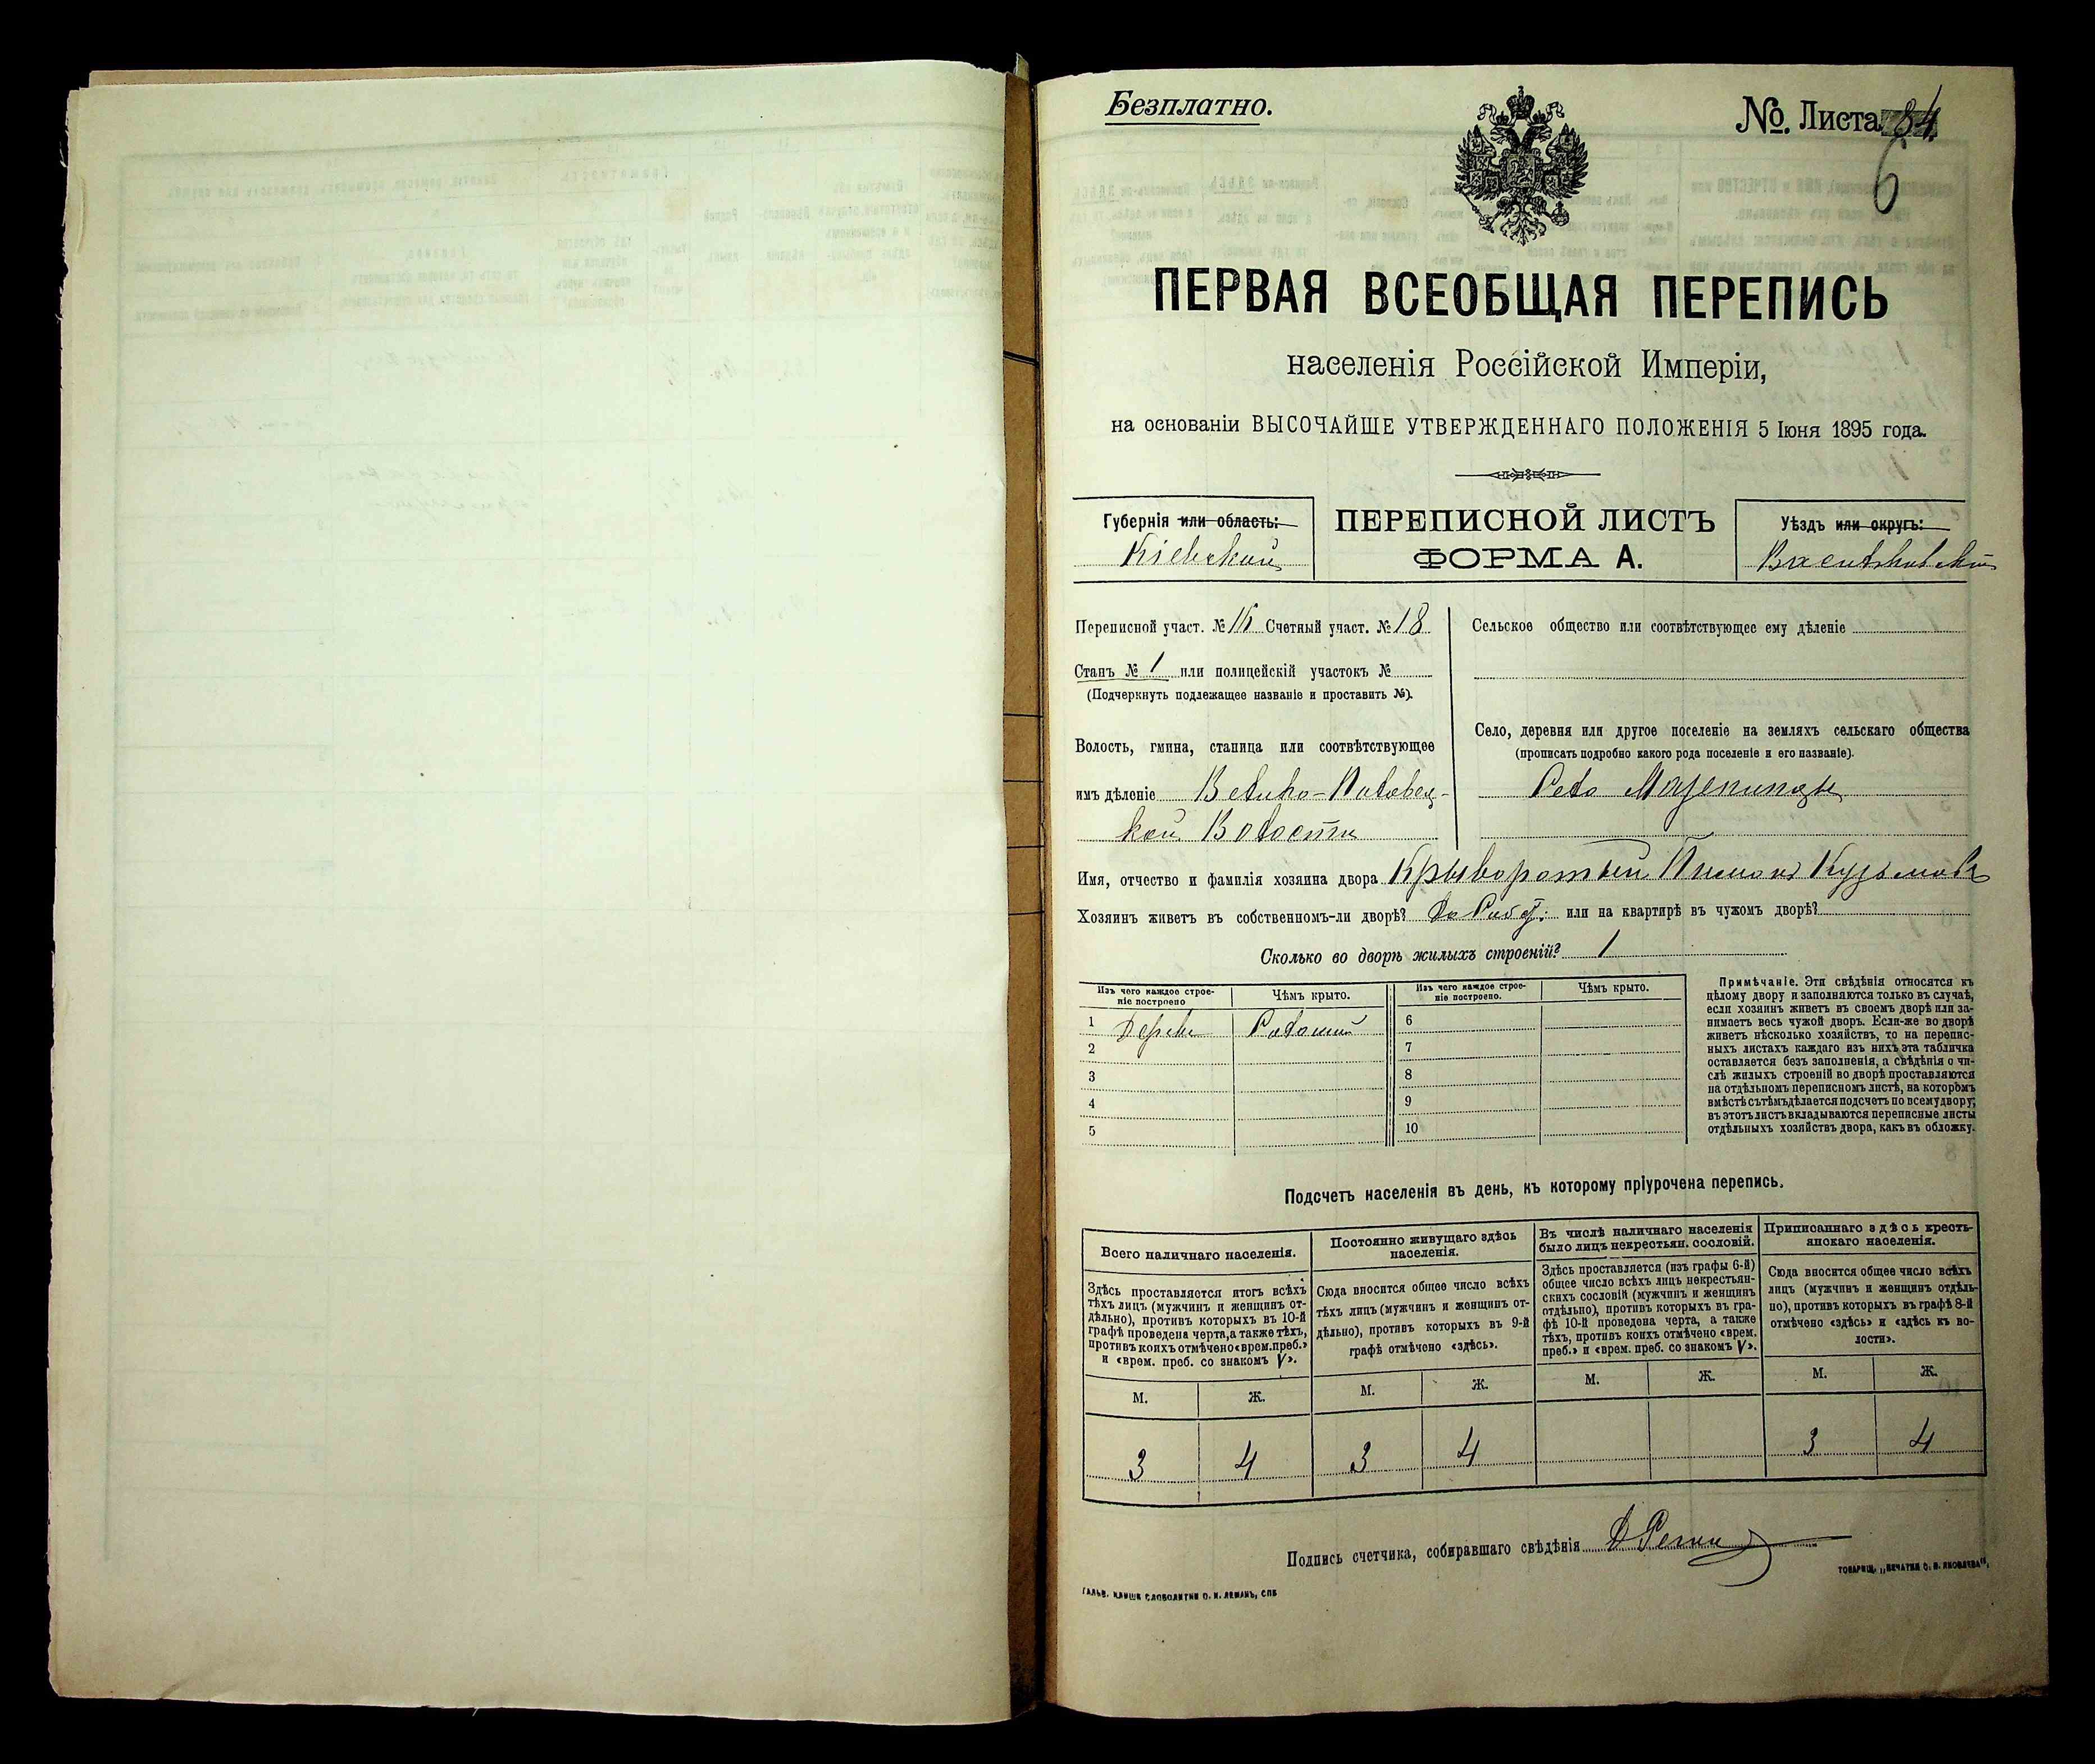 Безплатно.
№. Листа 84
6
ПЕРВАЯ ВСЕОБЩАЯ ПЕРЕПИСЬ
населенія Россійской Имперіи,
на основаніи ВЫСОЧАЙШЕ УТВЕРЖДЕННАГО ПОЛОЖЕНІЯ 5 Іюня 1895 года.
Губернія или область:
Кіевской
ПЕРЕПИСНОЙ ЛИСТЪ
ФОРМА А.
Уѣздъ или округъ:
Васильковский
Переписной участ. № Счетный участ. № 18
Станъ № 1 или полицейскій участокъ №
(Подчеркнуть подлежащее названіе и проставить №).
Волость, гмина, станица или соотвѣтствующее
имъ дѣленіе Велико-Половец-
кой Волости
Сельское общество или соотвѣтствующее ему дѣленіе
Село, деревня или другое поселеніе на земляхъ сельскаго общества
(прописать подробно какого рода поселеніе и его названіе).
Село Мазепинцы
Имя, отчество и фамилія хозяина двора Крыворотый Пимонъ Кузьмовъ
Хозяинъ живетъ въ собственномъ-ли дворѣ? или на квартирѣ въ чужомъ дворѣ?
Сколько во дворѣ жилыхъ строеній? 1
Изъ чего каждое строе-
ніе построено
Чѣмъ крыто.
Изъ чего каждое строе-
ніе построено.
Чѣмъ крыто.
1 Дерев. Соломой 6
2 7
3 8
4 9
5 10
Примѣчаніе. Эти свѣдѣнія относятся къ
цѣлому двору и заполняются только въ случаѣ,
если хозяинъ живетъ въ своемъ дворѣ или за-
нимаетъ весь чужой дворъ. Если-же во дворѣ
живетъ нѣсколько хозяйствъ, то на перепис-
ныхъ листахъ каждаго изъ нихъ эта табличка
оставляется безъ заполненія, а свѣдѣнія о чи-
слѣ жилыхъ строеній во дворѣ проставляются
на отдѣльномъ переписномъ листѣ, на которомъ
вмѣстѣ съ тѣмъ дѣлается подсчетъ по всему двору;
въ этотъ листъ вкладываются переписные листы
отдѣльныхъ хозяйствъ двора, какъ въ обложку.
Подсчетъ населенія въ день, къ которому пріурочена перепись.
Всего наличнаго населенія.
Здѣсь проставляется итогъ всѣхъ
тѣхъ лицъ (мужчинъ и женщинъ от-
дѣльно), противъ которыхъ въ 10-й
графѣ проведена черта, а также тѣхъ,
противъ коихъ отмѣчено «врем. преб.»
и «врем. преб. со знакомъ V».
Постоянно живущаго здѣсь
населенія.
Сюда вносится общее число всѣхъ
тѣхъ лицъ (мужчинъ и женщинъ от-
дѣльно), противъ которыхъ въ 9-й
графѣ отмѣчено «здѣсь».
Въ числѣ наличнаго населенія
было лицъ некрестьян. сословій.
Здѣсь проставляется (изъ графы 6-й)
общее число всѣхъ лицъ некрестьян-
скихъ сословій (мужчинъ и женщинъ
отдѣльно), противъ которыхъ въ гра-
фѣ 10-й проведена черта, а также
тѣхъ, противъ коихъ отмѣчено «врем.
преб.» и «врем. преб. со знакомъ V».
Приписаннаго здѣсь кресть-
янскаго населенія.
Сюда вносится общее число всѣхъ
лицъ (мужчинъ и женщинъ отдѣль-
но), противъ которыхъ въ графѣ 8-й
отмѣчено «здѣсь» и «здѣсь къ во-
лости».
М. Ж. М. Ж. М. Ж. М. Ж.
3 4 3 4 3 4
Подпись счетчика, собиравшаго свѣдѣнія
ГАЛЬВ. КЛИШЕ СЛОВОЛИТНИ О. И. ЛЕМАНЪ, СПБ
ТОВАРИЩ. „ПЕЧАТНЯ С. П. ЯКОВЛЕВА".